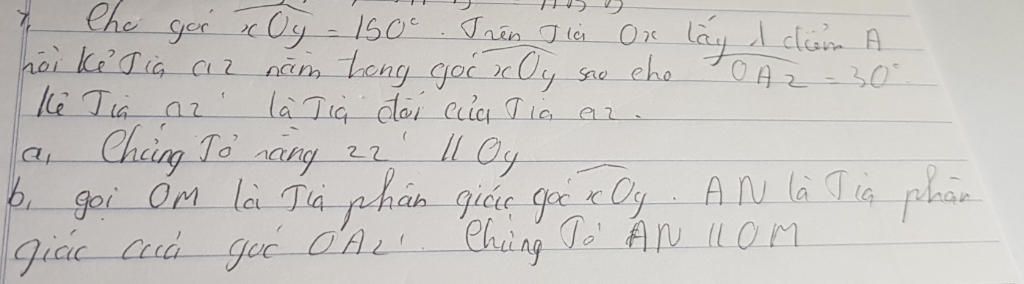 Cho góc xOy = 150°. Trên Tia Ox lấy 1 điểm A
rồi kẻ Tia Az nằm trong góc xOy sao cho OAz = 30°
kẻ Tia Az' là Tia đối của Tia Az.
a, Chứng Tỏ rằng zz' // Oy
b, gọi OM là Tia phân giác góc xOy. AN là Tia phân
giác của góc OAz'. Chứng Tỏ AN // OM